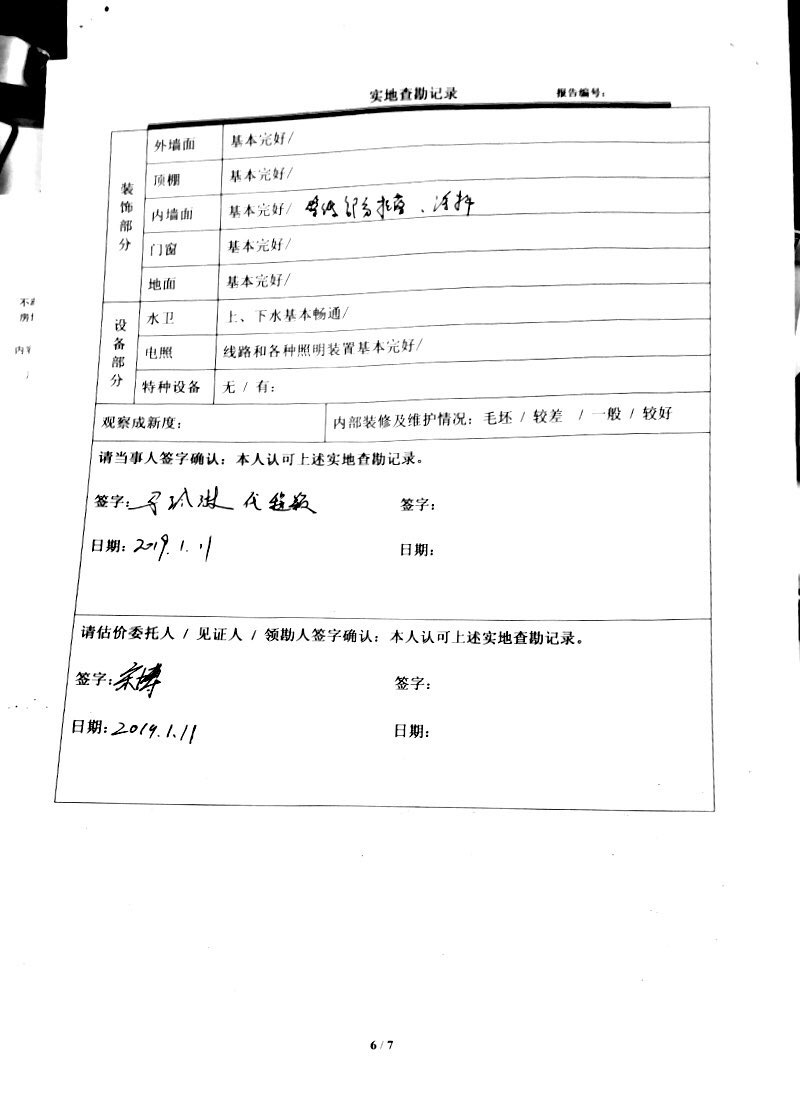 实地查勘记录 报告编号：
装饰部分
外墙面 基本完好/
顶棚 基本完好/
内墙面 基本完好/
门窗 基本完好/
地面 基本完好/
设备部分
水卫 上、下水基本畅通/
电照 线路和各种照明装置基本完好/
特种设备 无 / 有：
观察成新度： 内部装修及维护情况：毛坯 / 较差 / 一般 / 较好
请当事人签字确认：本人认可上述实地查勘记录。
签字： 签字：
日期：2019.1.11 日期：
请估价委托人 / 见证人 / 领勘人签字确认：本人认可上述实地查勘记录。
签字：宋博 签字：
日期：2019.1.11 日期：
6 / 7